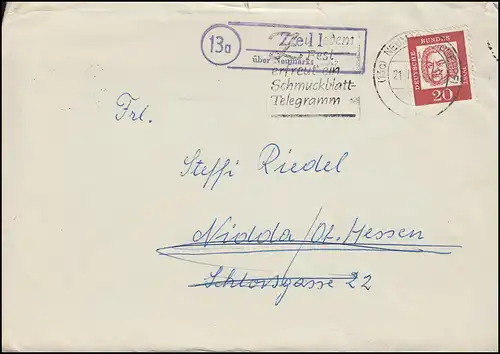 13a
über Neumarkt
Zu jedem
Fest
erfreut ein
Schmuckblatt-
Telegramm
21
DEUTSCHE
BUNDES
20
Frl.
Steffi Riedel
Nidda/Ob. Hessen
Schlossgasse 22